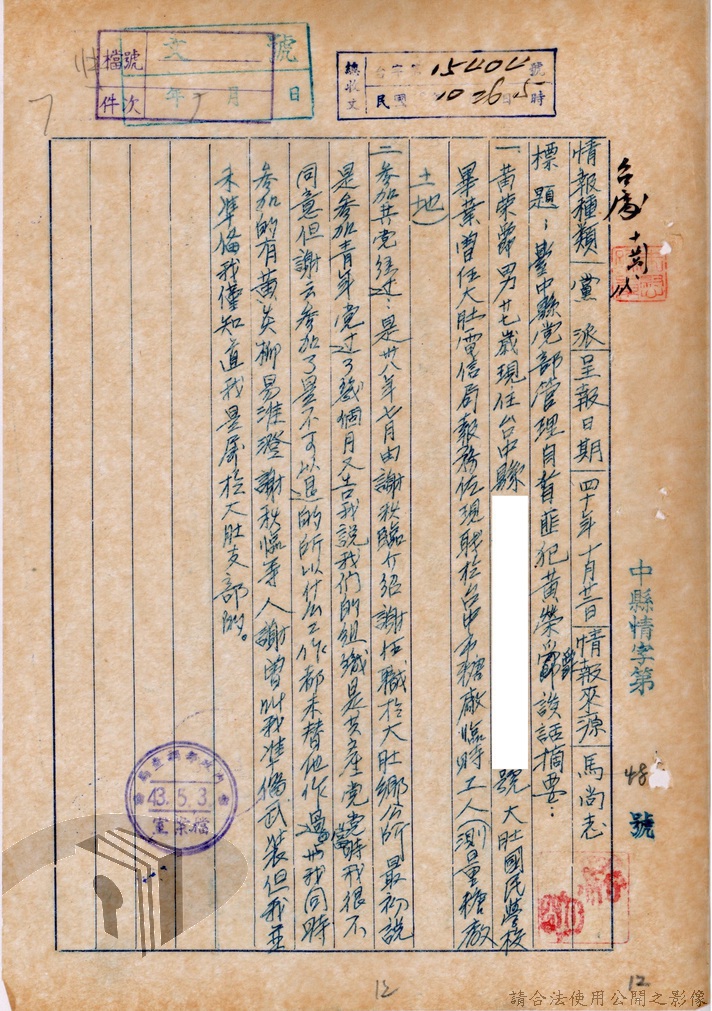 檔號
件次
文 號
年 月 日
總收文
台字第 15404 號
民國 10 26 5 時
中縣情字第 號
情報種類 黨派 呈報日期 四十年十月廿二日 情報來源 馬尚志
標題：臺中縣党部管理自首匪犯黃榮爵談話摘要：
一 黃榮爵男廿七歲現任台中縣
號大肚國民學校
畢業曾任大肚電信局報務佐現職於台中市糖廠臨時工人(測量糖廠
土地)
二 參加共党经过：是卅八年七月由謝秋臨介紹謝任職於大肚鄉公所最初說
是參加青年党过了幾個月又告我說我們的組織是共產党當時我很不
同意但謝云參加了是不可以退的所以什么工作都未替他作過与我同時
參加的有黃炎柳易淮澄謝秋臨等人謝曾叫我準備武装但我並
未準備我僅知道我是屬於大肚支部的。
43.5.3
檔案室
12
12
請合法使用公開之影像